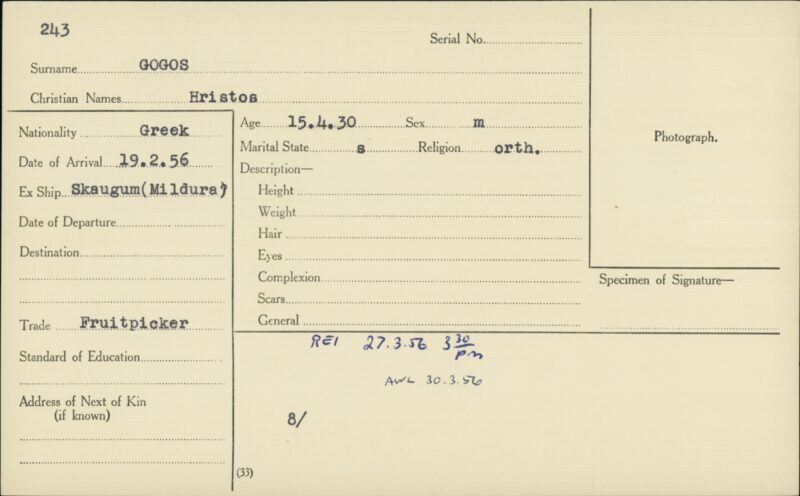 243
Serial No.
Surname GOGOS
Christian Names Hristos
Nationality Greek
Date of Arrival 19.2.56
Ex Ship Skaugum(Mildura)
Date of Departure
Destination
Trade Fruitpicker
Standard of Education
Address of Next of Kin
(if known)
Age 15.4.30 Sex m
Marital State s Religion orth.
Description—
Height
Weight
Hair
Eyes
Complexion
Scars
General
Photograph.
Specimen of Signature—
REI 27.3.56 3 30/pm
AWL 30.3.56
8/
(33)